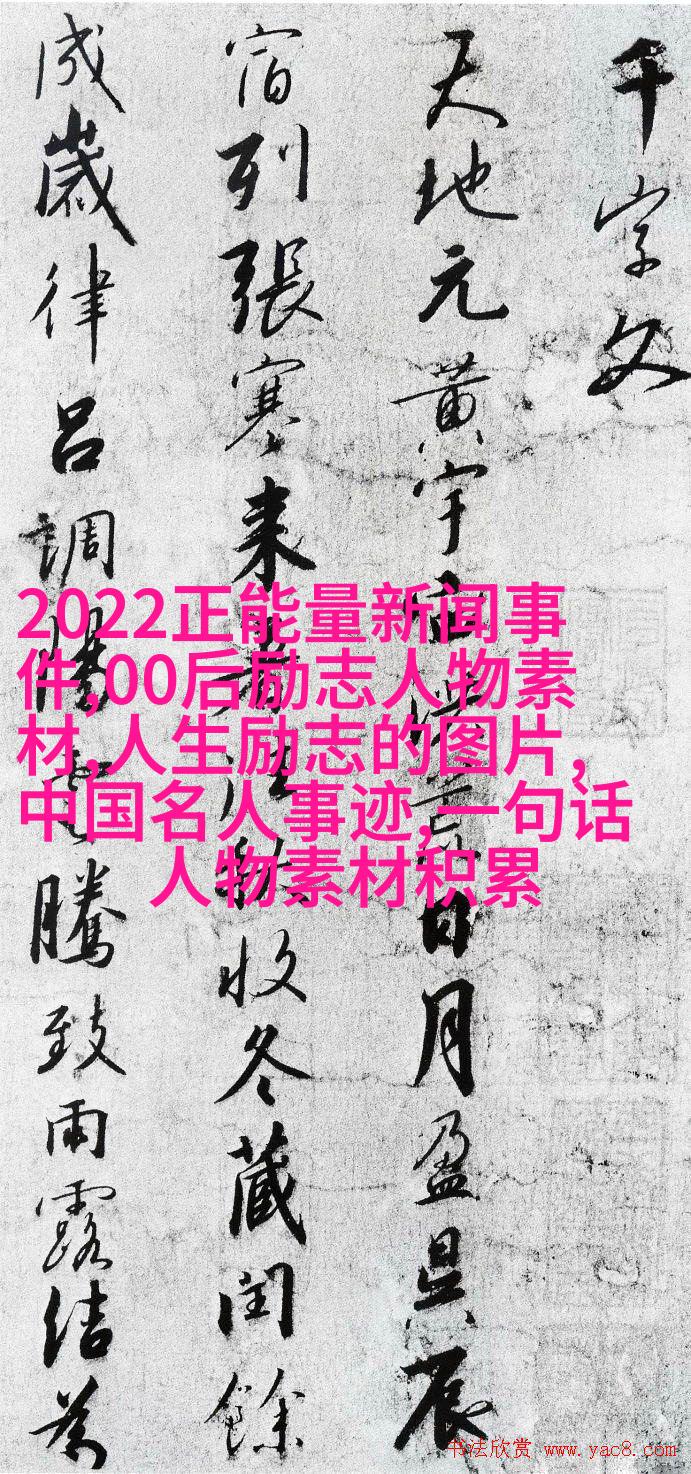 千字文
天地元黄宇宙洪荒日月盈昃辰
宿列張寒来暑往秋收冬藏閏餘
成歲律吕調陽雲騰致雨露結為
2022正能量新闻事
件,00后励志人物素
材,人生励志的图片,
中国名人事迹,一句话
人物素材积累
书法欣赏 www.yac8.com